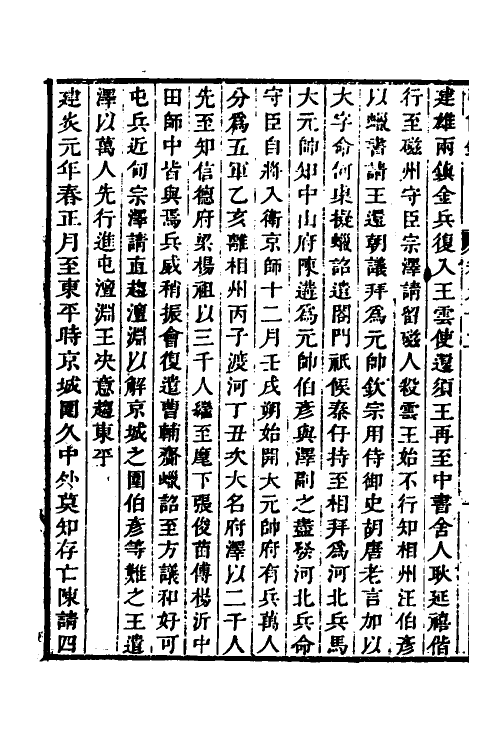 建雄兩鎮金兵復入王雲使還須王再至中書舍人耿延禧偕
行至磁州守臣宗澤請留磁人殺雲王始不行知相州汪伯彥
以蠟書請王還朝議拜爲元帥欽宗用侍御史胡唐老言加以
大字命何㮚擬蠟詔遣閤門祇候秦仔持至相拜爲河北兵馬
大元帥知中山府陳遘爲元帥伯彥與澤副之盡發河北兵命
守臣自將入衛京師十二月壬戌朔始開大元帥府有兵萬人
分爲五軍乙亥離相州丙子渡河丁丑次大名府澤以二千人
先至知信德府梁楊祖以三千人繼至麾下張俊苗傅楊沂中
田師中皆與焉兵威稍振會復遣曹輔齎蠟詔至方議和好可
屯兵近甸宗澤請直趨澶淵以解京城之圍伯彥等難之王遣
澤以萬人先行進屯澶淵王决意趨東平
建炎元年春正月至東平時京城圍久中外莫知存亡陳請四